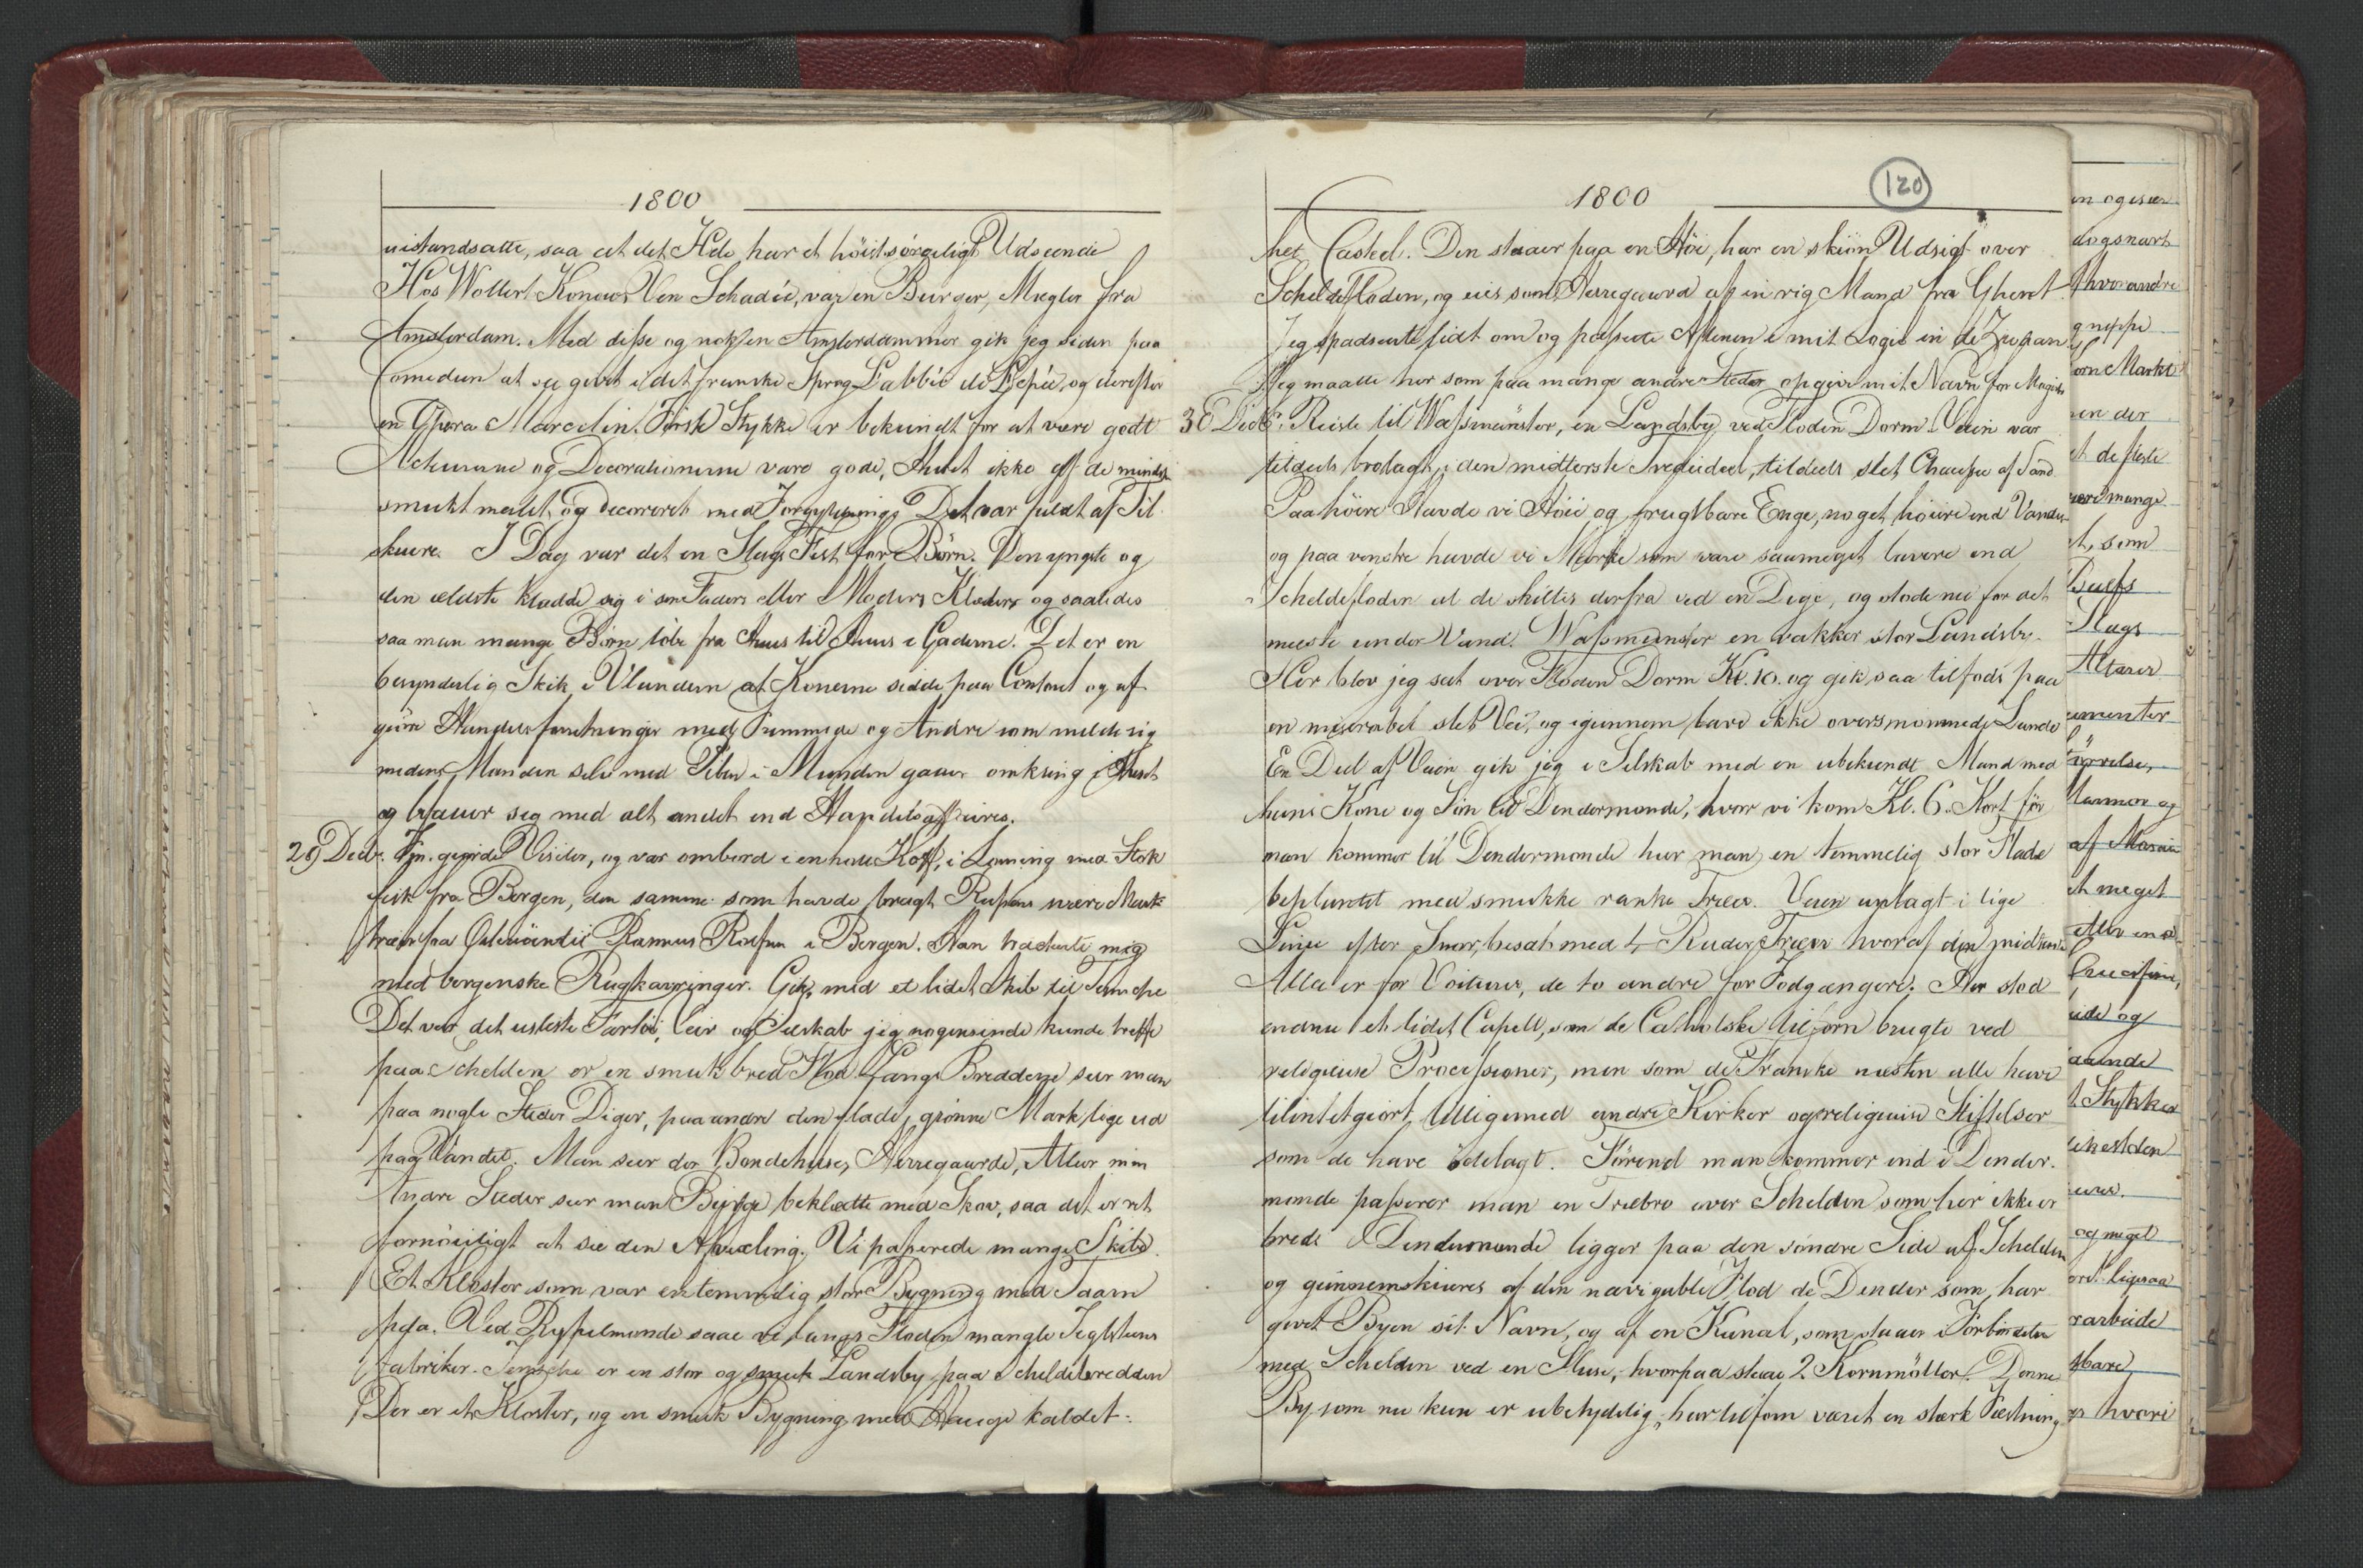 1800
uistandsatte, saa at det Hele har et höist sörgeligt Udseende
Hos Wollert Konows Ven Schadée, var en Burger, Mægler fra
Amsterdam. Med disse og nok en Amsterdammer gik jeg siden paa
Comedien at see givet i det franske Sprog L'abbée de L'Epée, og derefter
en Opera Marcelin. Förste Stykke er bekiendt for at være godt
Acteurerne og Decorationerne vare gode, Huset ikke af de mindst
smukt malet og decoreret med Forgyldning. Det var fuldt af Til-
skuere. I Dag var det en Slags Fest for Börn. Den yngste og
den ældste klædde sig i sin Faders eller Moders Klæder og saaledes
saa man mange Börn löbe fra Huus til Huus i Gaderne. Det er en
besynderlig Skik i Vlandern at Konerne sidde paa Contoret og af-
giöre Handelsforretninger med Fremmede og Andre som melde sig
medens Manden selv med Piben i Munden gaaer omkring i Huset
og befatter sig med alt andet end Handelsaffairer.
29 Decbr. Fm. giorde Visiter, og var ombord i en holl. Koff, i Losning med Stok
fisk fra Bergen, den samme som havde bragt
fra Rasmus Rolfsen i Bergen. Han tracterte mig
med bergenske Rugkavringer. Gik med et lidet Skib til Temche
Det var det usleste Fartöi, Veir og Selskab jeg nogensinde kunde treffe
paa Schelden er en smuk bred Flod. Langs Bredderne seer man
paa nogle Steder Diger, paa andre den flade, grönne Mark lige ud
paa Vandet. Man seer der Bondehuse, Herregaarde, Alleer men
Andre Steder seer man Bierge beklædte med Skov, saa det er ret
fornöieligt at see den Afvexling. Vi passerede mange Skibe.
Et Kloster som var en temmelig stor Bygning med Taarn
paa. Ved Rypelmonde saae vi langs Floden mangle Teglsteens
fabriker. Temsche er en stor og smuk Landsby paa Scheldebredden
Der er et Kloster, og en smuk Bygning med Hauge kaldet:
1800
120
het Casteel. Den staaer paa en Höi, har en skiön Udsigt over
Scheldefloden, og eies som Herregaard af en rig Mand fra Ghent
Jeg spadserte lidt om og passerte Aftenen i mit Logie in de Zwaan
Jeg maatte her som paa mange andre Steder opgive mit Navn for Magistr
30 Decbr. Reiste til Wassmünster, en Landsby ved Floden Dorm. Veien var
tildeels brolagt, i den midterste Trediedeel, tildeels slet Chaussee af Sand
Paa höire Havde vi Höie og frugtbare Enge, noget höiere end Vandet
og paa venstre havde vi Marke som vare saameget lavere end
Scheldefloden at de skilles derfra ved en Dige, og stode nu for det
meeste under Vand. Wassmunster en vakker stor Landsby.
Her blev jeg sat over Floden Dorm Kl. 10. og gik saa tilfods paa
en miserabel slet Vei, og igiennem bare ikke oversvömmede Lande
En Deel af Veien gik jeg i Selskab med en ubekiendt Mand med
hans Kone og Sön til Dendermonde, hvor vi kom Kl. 6. Kort för
man kommer til Dendermonde har man en temmelig stor Slade
beplantet med smukke ranke Træer. Veien anlagt i lige
Linie efter Snor, besat med 4 Rader Træer hvoraf den midterste
Allee er for Voiturer, de to andre for Fodgængere. Her stod
endnu et lidet Capell, som de Catholske tilforn brugte ved
religieuse Processioner, men som de Franske næsten alle have
tilintetgiort, tilligemed andre Kirker og religieuse Stiftelser
som de have ödelagt. Förend man kommer ind i Dender-
monde passerer man en Træbro over Schelden som her ikke er
bred. Dendermonde ligger paa den söndre Side af Schelden
og giennemskiæres af den navigable Flod de Dender som har
givet Byen sit Navn, og af en Kanal, som staaer i Forbindelse
med Schelden ved en Sluse, hvorpaa staae 2 Kornmöller. Denne
By som nu kun er ubetydelig, har tilforn været en stærk Fæstning
dogsnart
hverandre
gneppe
orn Markt
en der
et de fleste
mange
et, som
Slags
Altarer
Marmor og
af
et meget
Crucifixer,
ide og
Stykker
og meget
ligesaa
arbeide
bare
hvori